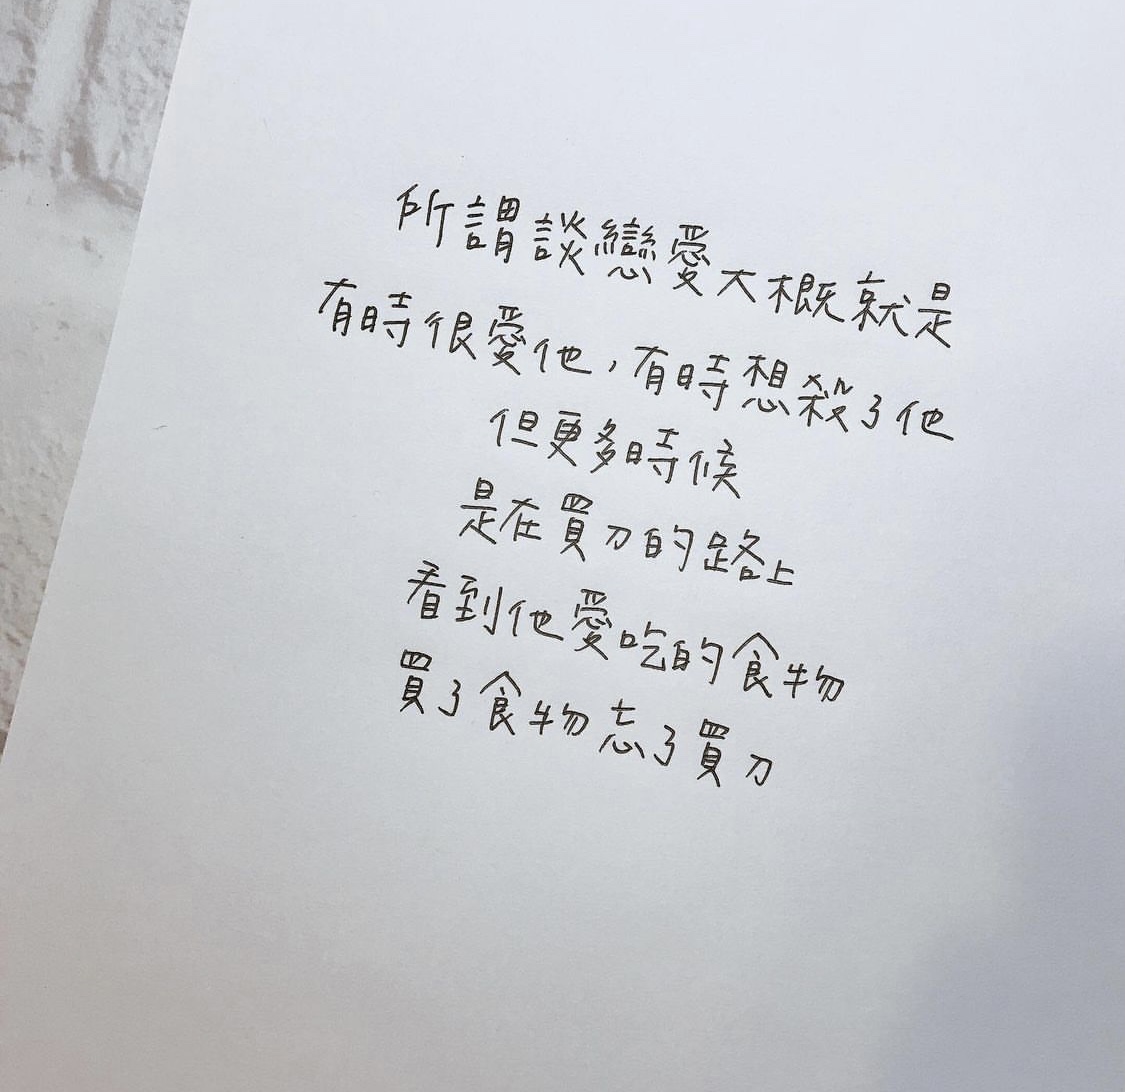 所謂談戀愛大概就是
有時很愛他，有時想殺了他
但更多時候
是在買刀的路上
看到他愛吃的食物
買了食物忘了買刀